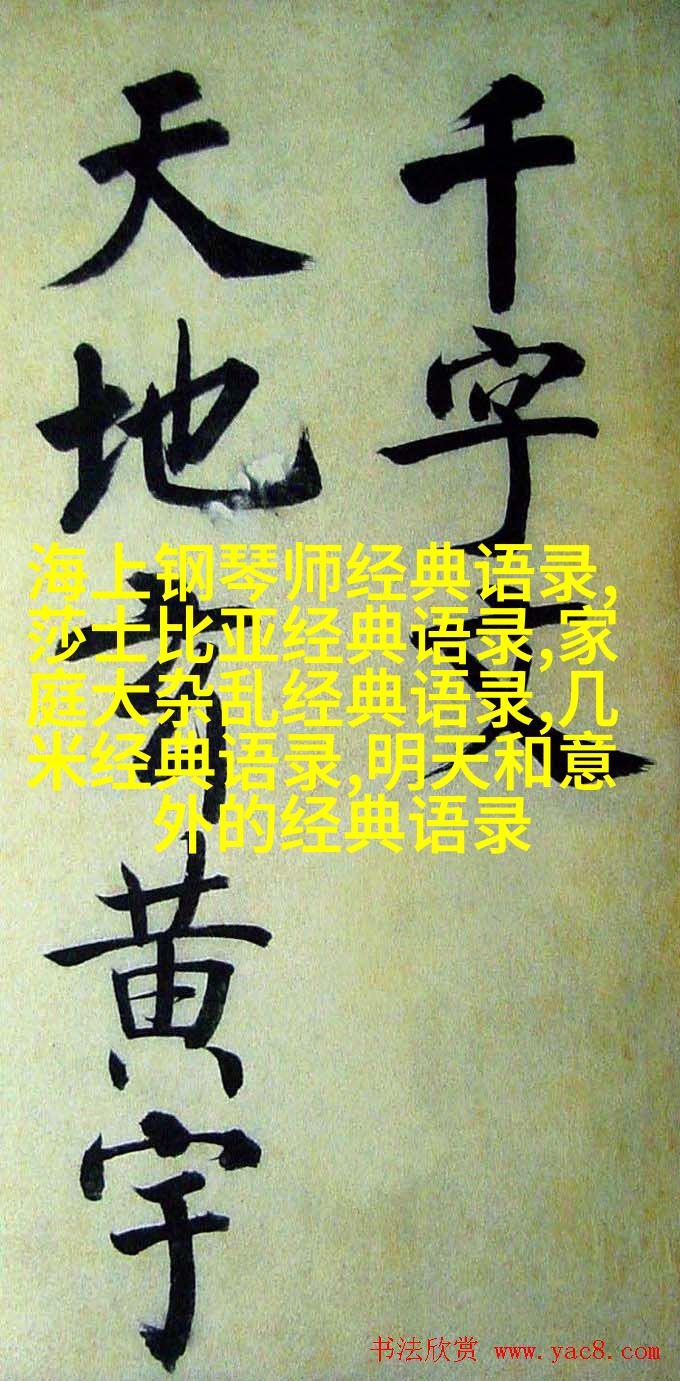 千字文
天地黄宇
海上钢琴师经典语录,
莎士比亚经典语录,家
庭大杂乱经典语录,几
米经典语录,明天和意
外的经典语录
书法欣赏 www.yac8.com